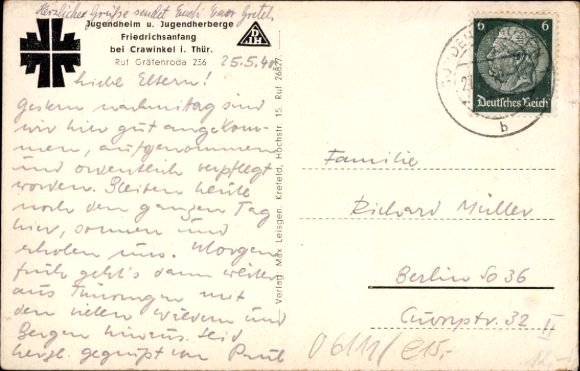 Herzliche Grüße sendet Euch Euer Gretel.
Jugendheim u. Jugendherberge
Friedrichsanfang
bei Crawinkel i. Thür.
Ruf Gräfenroda 236
DJH
25.5.4
Liebe Eltern!
Gestern nachmittag sind
wir hier gut angekom-
men, aufgenommen
und ordentlich verpflegt
worden. Bleiben heute
noch den ganzen Tag
hier, sonnen und
erholen uns. Morgen
früh geht's dann weiter
aus Thüringen mit
den vielen Wäldern und
Bergen hinaus. Seid
herzl. gegrüßt von Paul
Verlag Max Leisgen, Krefeld, Hochstr. 15. Ruf 26827
6 6
Deutsches Reich
b
Familie
Richard Müller
Berlin So 36
Cuvrystr. 32 II
06111/ €15,-
12,-